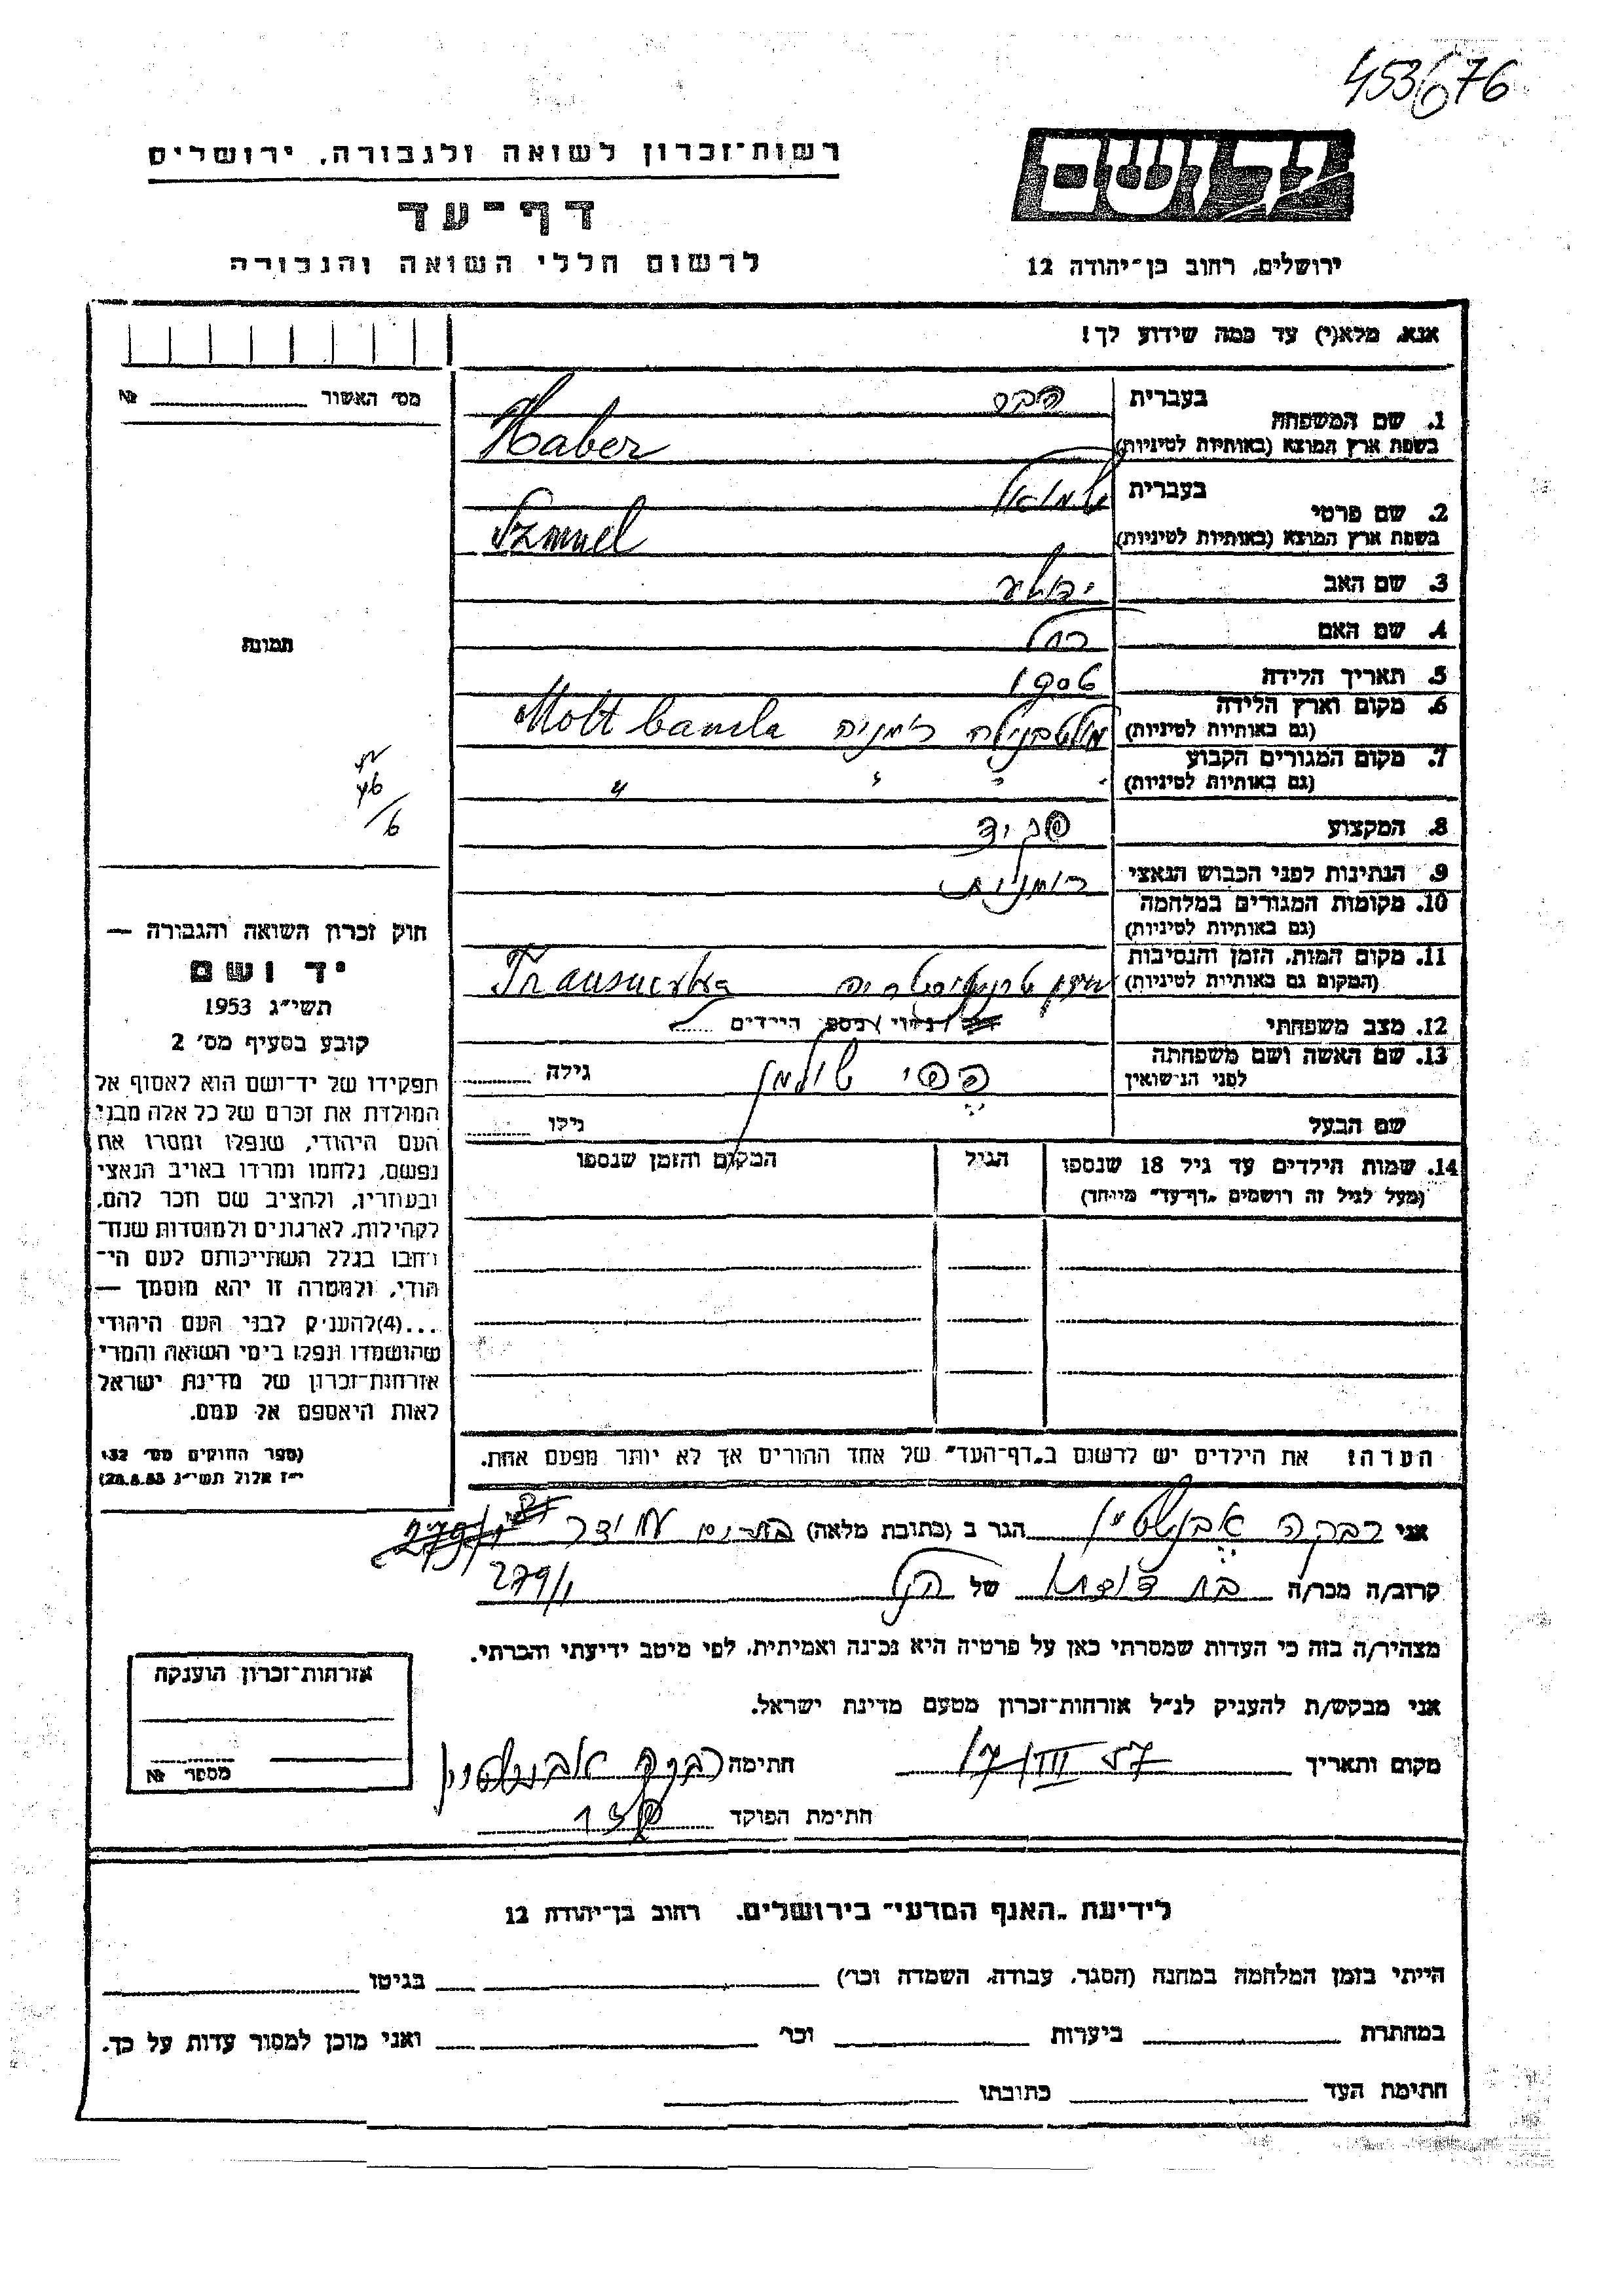 453676
יד ושם
רשות־זכרון לשואה ולגבורה, ירושלים
דף־עד
לרשום חללי השואה והגבורה
ירושלים, רחוב בן־יהודה 12
אנא, מלא(י) עד כמה שידוע לך!
מס׳ האשור № 
1. שם המשפחה
בעברית הבר
בשפת ארץ המוצא (באותיות לטיניות) Haber
2. שם פרטי
בעברית שמואל
בשפת ארץ המוצא (באותיות לטיניות) Szmuel
3. שם האב
4. שם האם רחל
5. תאריך הלידה 1906
6. מקום וארץ הלידה
(גם באותיות לטיניות) רומניה Molt banila
7. מקום המגורים הקבוע
(גם באותיות לטיניות) " " " "
8. המקצוע פקיד
9. הנתינות לפני הכבוש הנאצי רומנית
10. מקומות המגורים במלחמה
(גם באותיות לטיניות)
11. מקום המות, הזמן והנסיבות
(המקום גם באותיות לטיניות)
12. מצב משפחתי נשוי / מספר הילדים
13. שם האשה ושם משפחתה
לפני הנישואין פפי שולמן גילה
שם הבעל גילו
14. שמות הילדים עד גיל 18 שנספו הגיל המקום והזמן שנספו
(מעל לגיל זה רושמים „דף־עד" מיוחד)
הערה: את הילדים יש לרשום ב„דף־העד" של אחד ההורים אך לא יותר מפעם אחת.
תמונה
חוק זכרון השואה והגבורה —
יד ושם
תשי״ג 1953
קובע בסעיף מס׳ 2
תפקידו של יד־ושם הוא לאסוף אל
המולדת את זכרם של כל אלה מבני
העם היהודי, שנפלו ומסרו את
נפשם, נלחמו ומרדו באויב הנאצי
ובעוזריו, ולהציב שם וזכר להם,
לקהילות, לארגונים ולמוסדות שנח־
רבו בגלל השתייכותם לעם הי־
הודי, ולמטרה זו יהא מוסמך —
...(4)להעניק לבני העם היהודי
שהושמדו ונפלו בימי השואה והמרי
אזרחות־זכרון של מדינת ישראל
לאות היאספם אל עמם.
(ספר החוקים מס׳ 132
י״ז אלול תשי״ג 28.8.53)
אני רבקה אבנשטיין הגר ב (כתובת מלאה)
קרוב/ה מכר/ה בת דודתו של הנ״ל 279/1
מצהיר/ה בזה כי העדות שמסרתי כאן על פרטיה היא נכונה ואמיתית, לפי מיטב ידיעתי והכרתי.
אני מבקש/ת להעניק לנ״ל אזרחות־זכרון מטעם מדינת ישראל.
מקום ותאריך 17/III 57 חתימה רבקה אבנשטיין
חתימת הפוקד
אזרחות־זכרון הוענקה
מספר №
לידיעת „האגף המדעי" בירושלים, רחוב בן־יהודה 12
הייתי בזמן המלחמה במחנה (הסגר, עבודה, השמדה וכו׳) בגיטו
במחתרת ביערות וכו׳ ואני מוכן למסור עדות על כך.
חתימת העד כתובתו